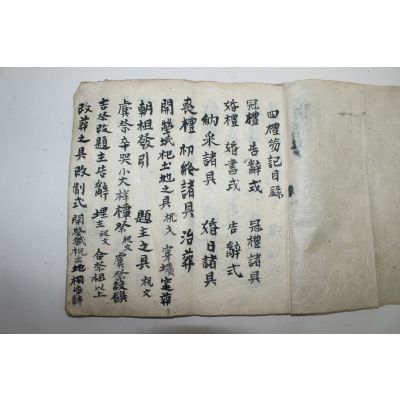 四禮笏記目錄
冠禮 告辭式 冠禮諸具
婚禮 婚書式 告辭式
納采諸具 婚日諸具
喪禮 初終諸具 治葬
開塋域祀土地之具 祝文 穿壙 窆葬
朝祖發引 題主之具 祝文
虞祭卒哭小大祥禫祭 祝文 虞祭
吉祭改題主告辭 埋主祝文 合祭祖以上
改葬之具 改制式 開塋域祝土地祠告辭